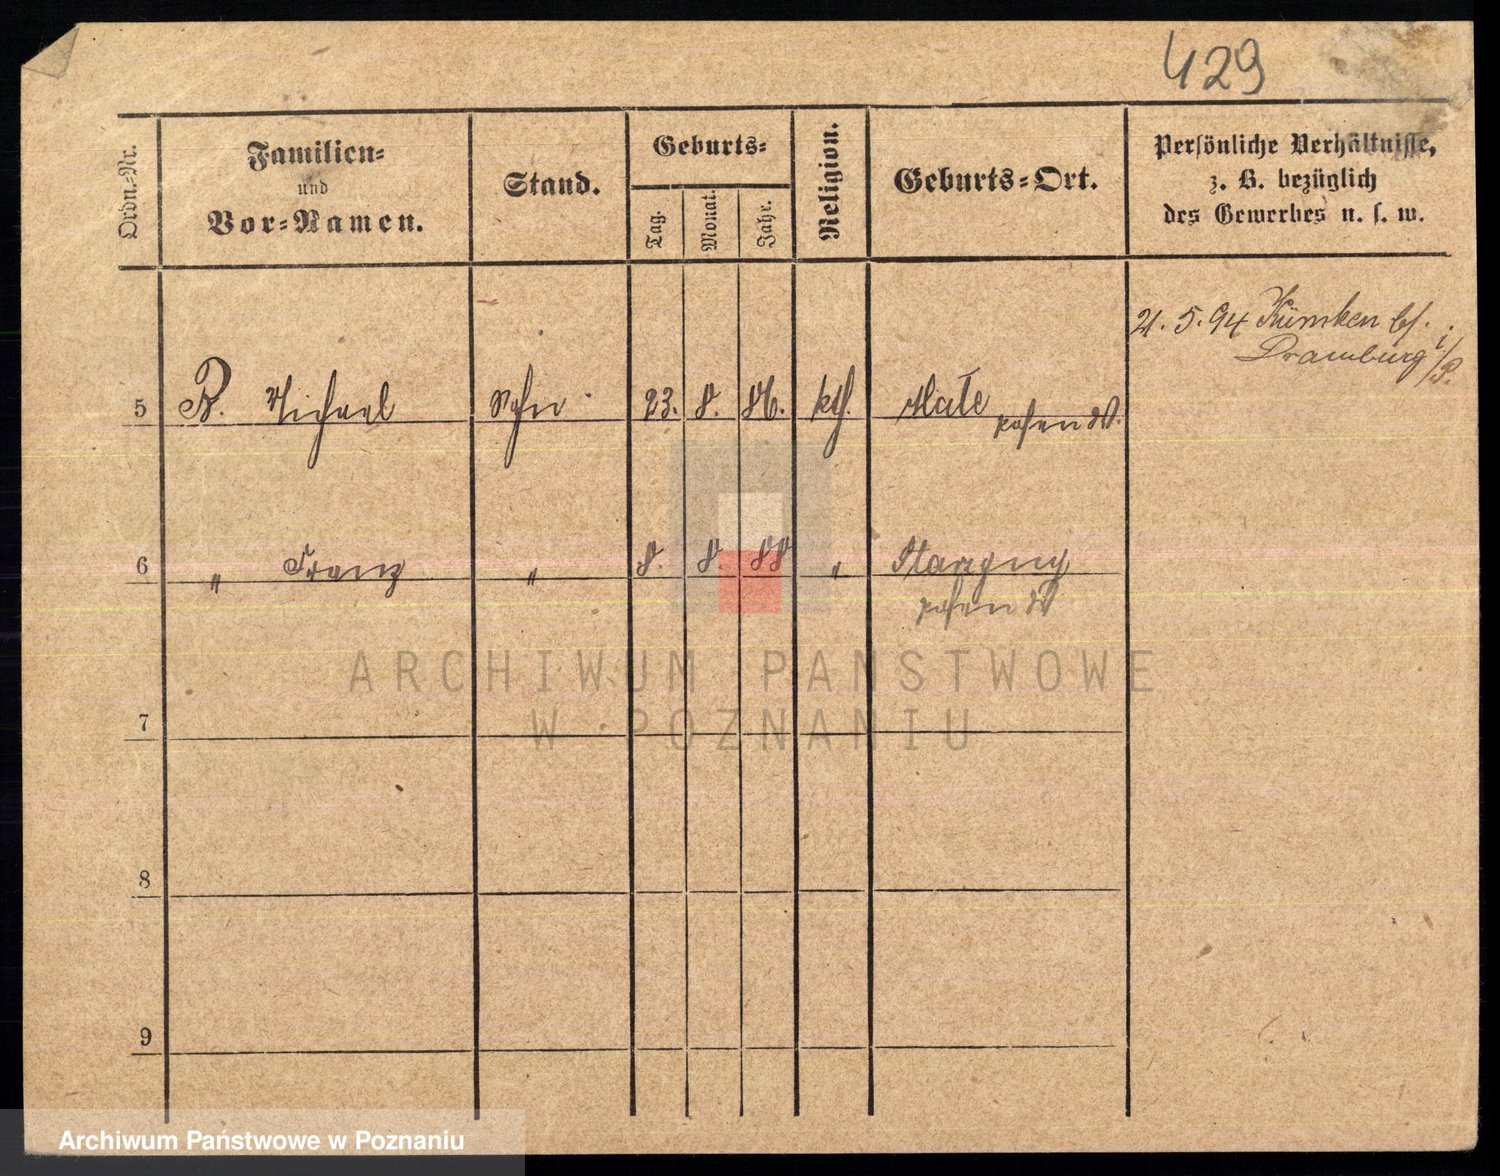 429
Ordn.-Nr.
Familien-
und
Vor-Namen.
Stand.
Geburts-
Tag.
Monat.
Jahr.
Religion.
Geburts-Ort.
Persönliche Verhältnisse,
z. B. bezüglich
des Gewerbes u. s. w.
21. 5. 94 bf.
Dramburg i/P.
5 B. Michael Sohn 23. 8. 86. kth.
Posen W.
6 " Franz " 8. 8. 88 "
Posen W
ARCHIWUM PAŃSTWOWE
W POZNANIU
7
8
9
Archiwum Państwowe w Poznaniu